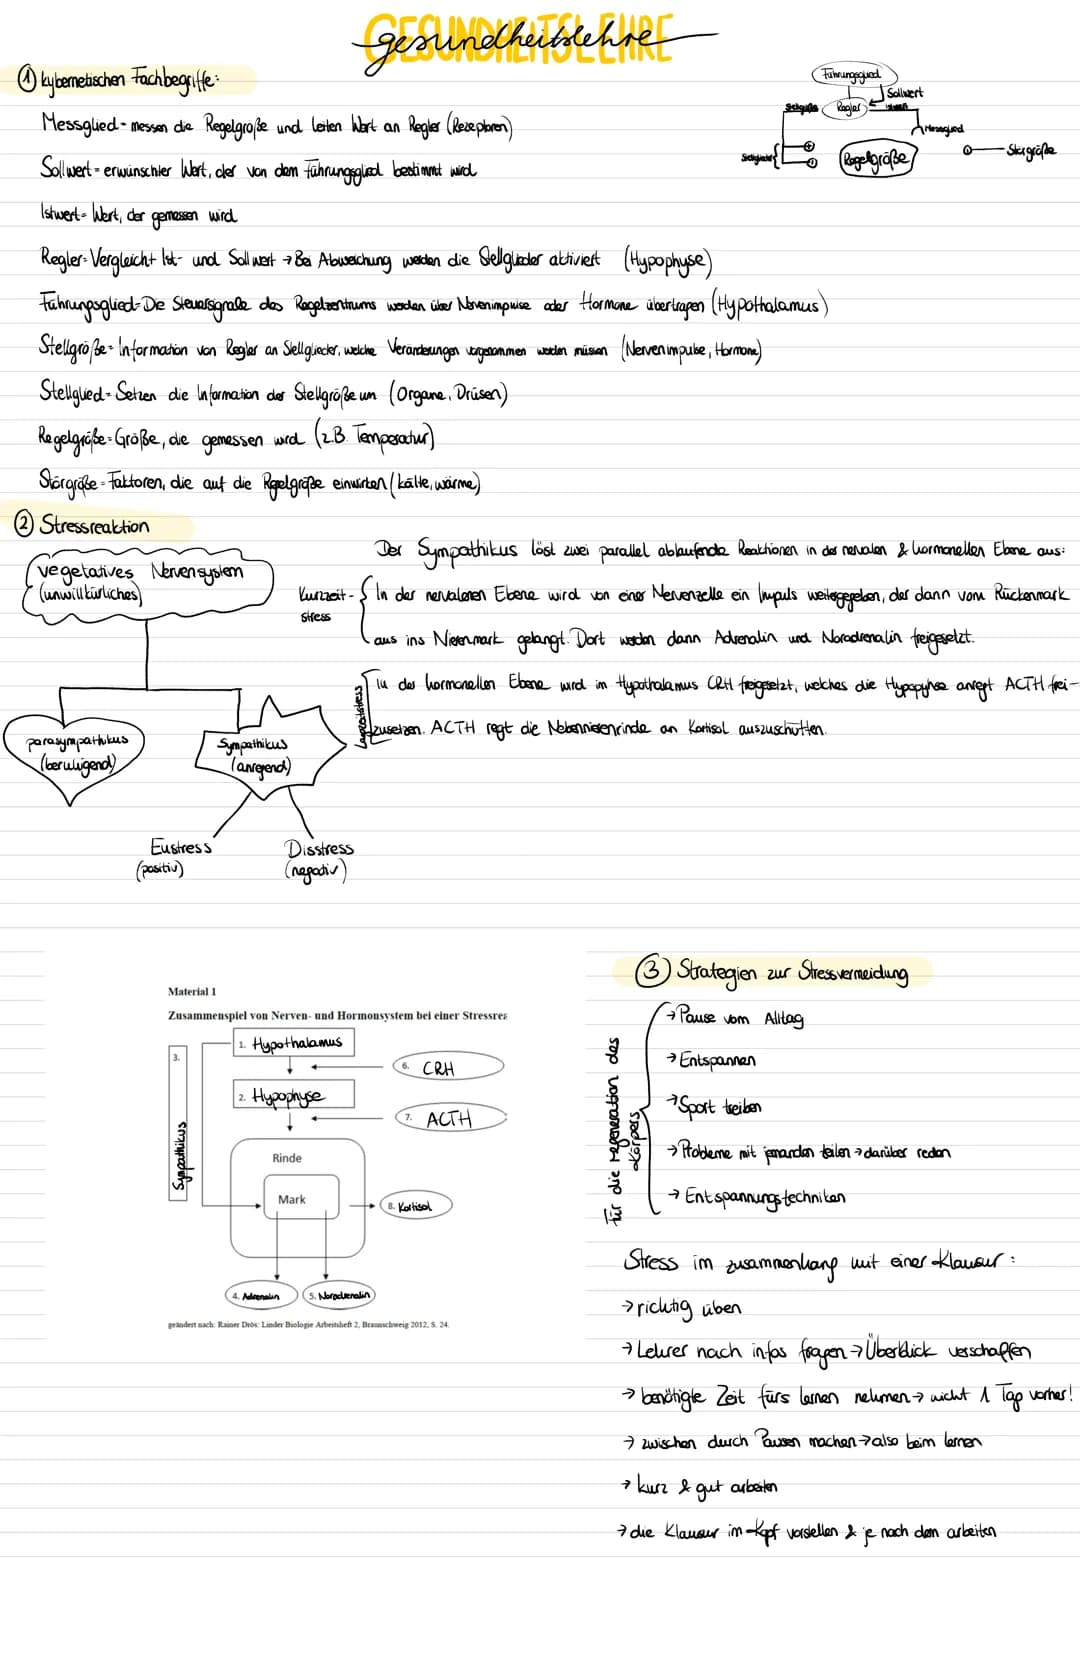 GESUNDHEITSLEHRE
gesundheitslehre
① kybernetischen Fachbegriffe:
Führungsglied
Sollwert
Stellgröße
Regler
Istwert
Messglied
Stellglieder
Regelgröße
Störgröße
Messglied - messen die Regelgröße und leiten Wert an Regler (Rezeptoren)
Sollwert = erwünschter Wert, der von dem Führungsglied bestimmt wird
Istwert = Wert, der gemessen wird
Regler = Vergleicht Ist- und Sollwert → Bei Abweichung werden die Stellglieder aktiviert (Hypophyse)
Führungsglied = Die Steuersignale des Regelzentrums werden über Nervenimpulse oder Hormone übertragen (Hypothalamus)
Stellgröße = Information von Regler an Stellglieder, welche Veränderungen vorgenommen werden müssen (Nervenimpulse, Hormone)
Stellglied = Setzen die Information der Stellgröße um (Organe, Drüsen)
Regelgröße = Größe, die gemessen wird (z.B. Temperatur)
Störgröße = Faktoren, die auf die Regelgröße einwirken (kälte, wärme)
② Stressreaktion
vegetatives Nervensystem
(unwillkürliches)
parasympathikus
(beruhigend)
Sympathikus
(anregend)
Eustress
(positiv)
Disstress
(negativ)
Der Sympathikus löst zwei parallel ablaufende Reaktionen in der nervalen & hormonellen Ebene aus:
Kurzzeit-
stress
In der nervaleren Ebene wird von einer Nervenzelle ein Impuls weitergegeben, der dann vom Rückenmark
aus ins Nierenmark gelangt. Dort werden dann Adrenalin und Noradrenalin freigesetzt.
Langzeitstress
In der hormonellen Ebene wird im Hypothalamus CRH freigesetzt, welches die Hypopyhse anregt ACTH frei-
zusetzen. ACTH regt die Nebennierenrinde an Kortisol auszuschütten.
Material 1
Zusammenspiel von Nerven- und Hormonsystem bei einer Stressrea
1. Hypothalamus
3.
Sympathikus
6. CRH
2. Hypophyse
7. ACTH
Rinde
Mark
8. Kortisol
4. Adrenalin
5. Noradrenalin
geändert nach: Rainer Drös: Linder Biologie Arbeitsheft 2, Braunschweig 2012, S. 24.
③ Strategien zur Stressvermeidung
Für die regeneration des
Körpers
→ Pause vom Alltag
→ Entspannen
→ Sport treiben
→ Probleme mit jemanden teilen → darüber reden
→ Entspannungstechniken
Stress im zusammenhang mit einer Klausur:
→ richtig üben
→ Lehrer nach infos fragen → Überblick verschaffen
→ benötigte Zeit fürs lernen nehmen → nicht 1 Tag vorher!
→ zwischen durch Pausen machen → also beim lernen
→ kurz & gut arbeiten
→ die Klausur im Kopf vorstellen & je nach dem arbeiten